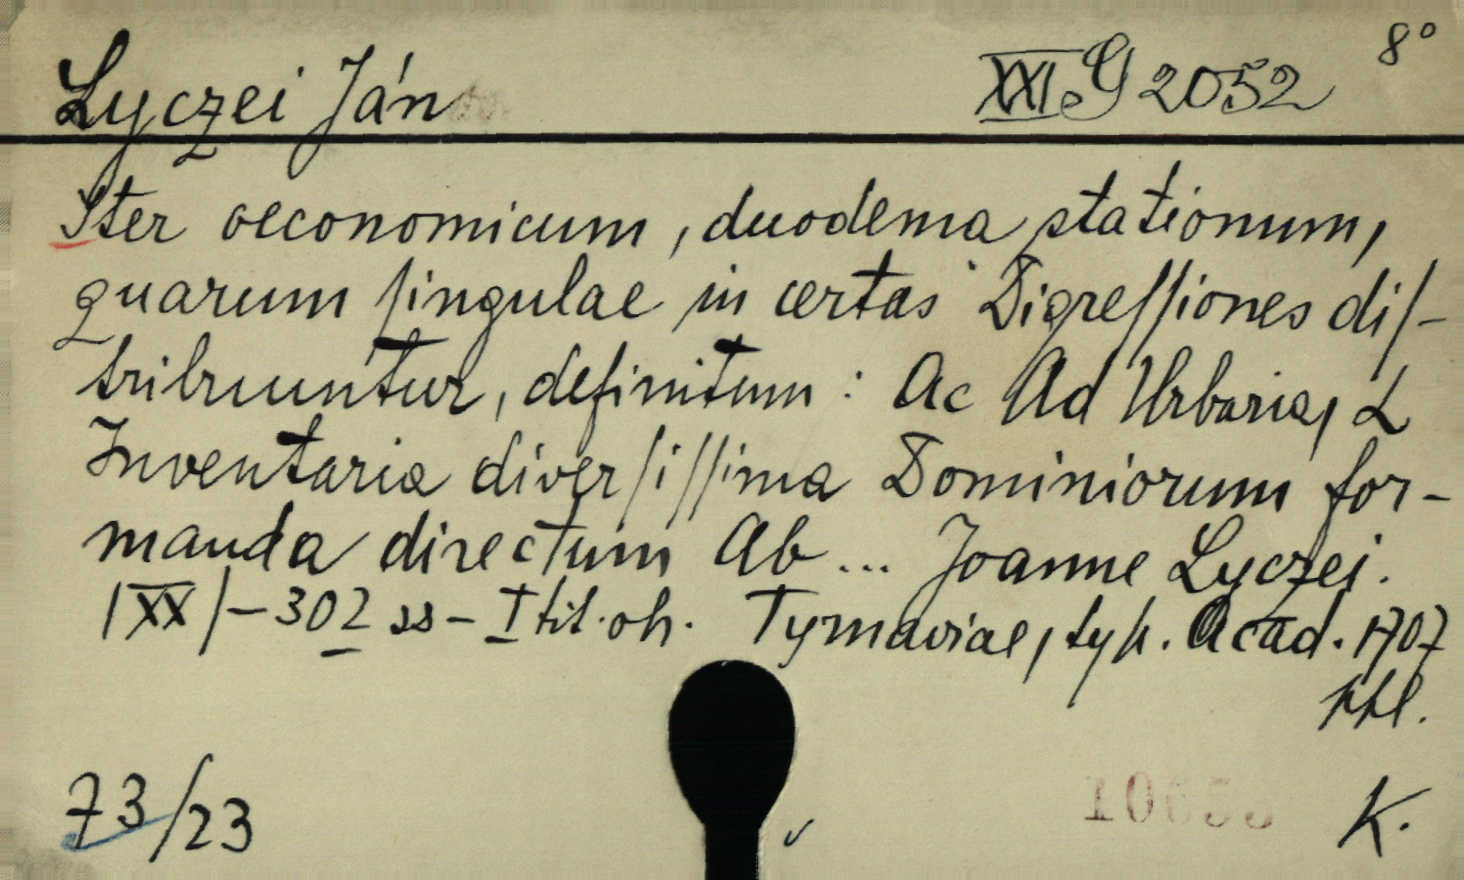 Lyczei Ján XXI. G 2052 8°
Iter oeconomicum, duodena stationum,
quarum ſingulae in certas Digreſſiones diſ-
tribuuntur, definitum: Ac Ad Urbaria, &
Inventaria diverſiſſima Dominiorum for-
manda directum Ab ... Joanne Lyczei.
/XX/ - 302 ss - I tit. oh. Tyrnaviae, typ. Acad. 1707
73/23 K.